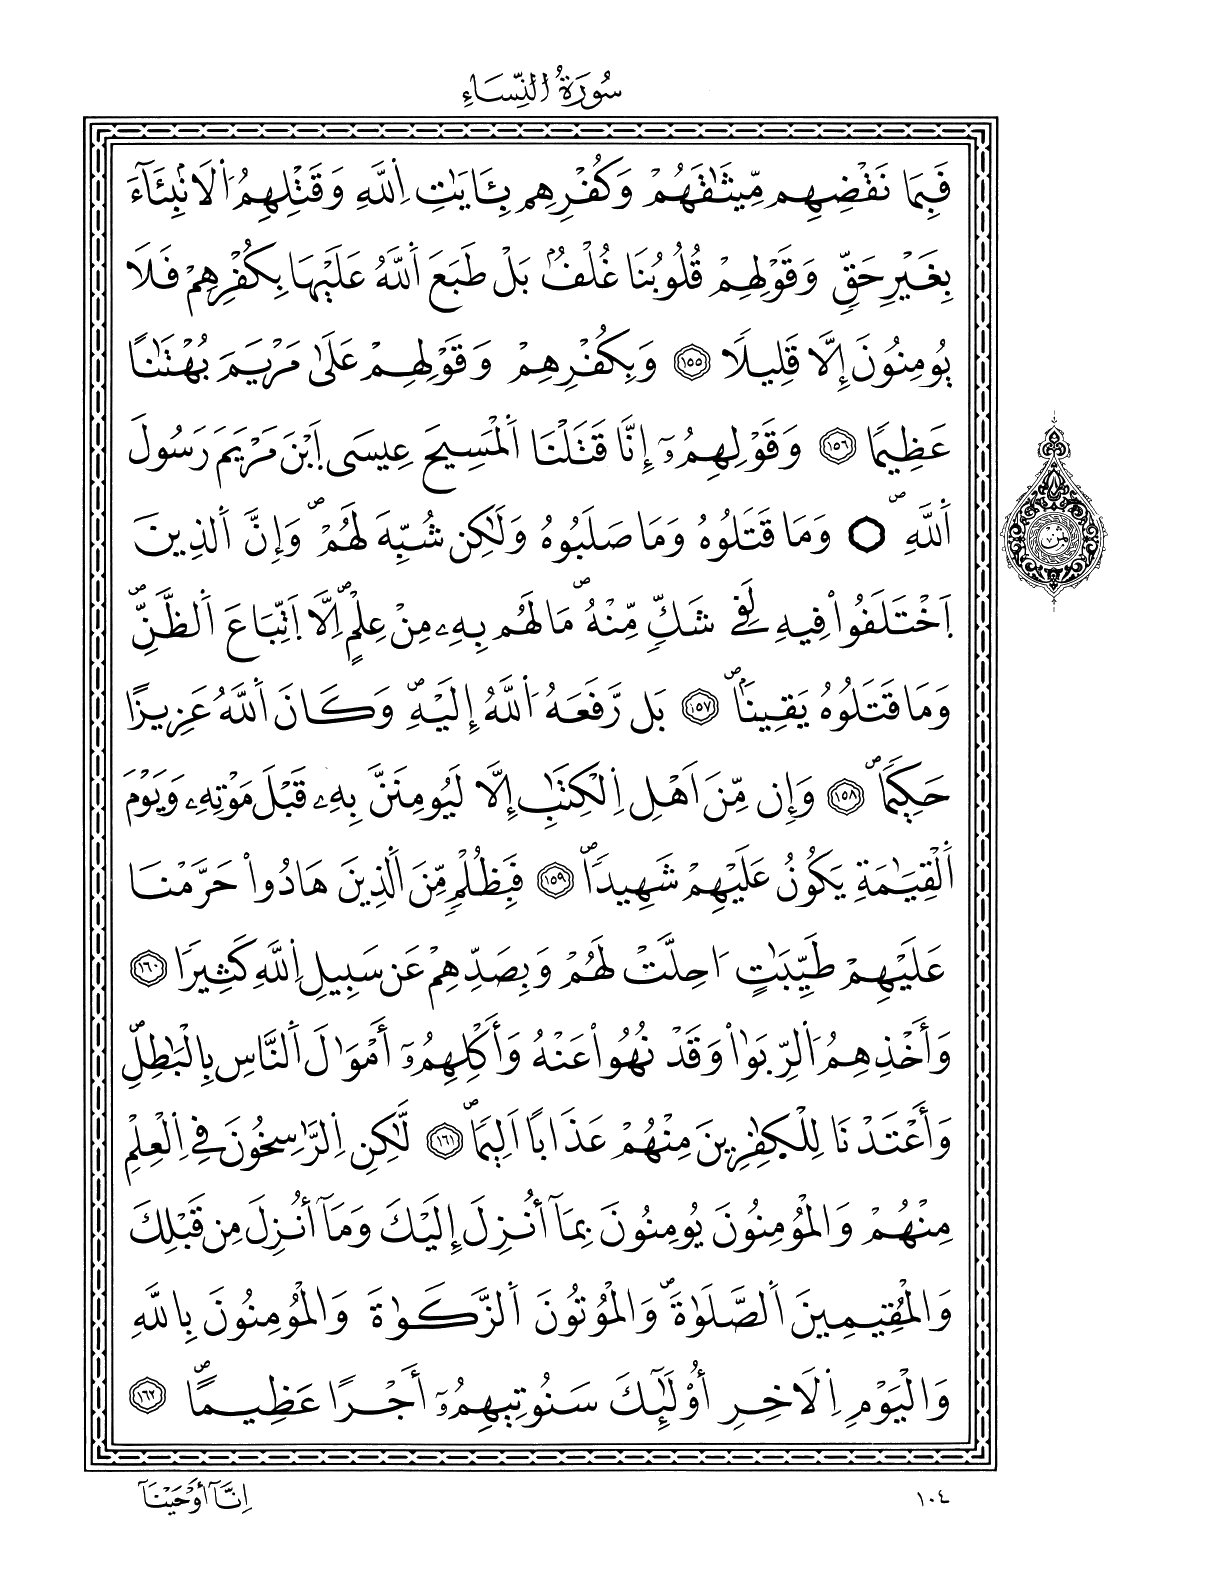 سُورَةُ النِّسَاءِ
فَبِمَا نَقْضِهِم مِّيثَٰقَهُمْ وَكُفْرِهِم بِـَٔايَٰتِ اِ۬للَّهِ وَقَتْلِهِمُ اُ۬لَانۢبِئَآءَ
بِغَيْرِ حَقّٖ وَقَوْلِهِمْ قُلُوبُنَا غُلْفُۢۖ بَلْ طَبَعَ اَ۬للَّهُ عَلَيْهَا بِكُفْرِهِمْ فَلَا
يُومِنُونَ إِلَّا قَلِيلًا ١٥٥ وَبِكُفْرِهِمْ وَقَوْلِهِمْ عَلَىٰ مَرْيَمَ بُهْتَٰنًا
عَظِيمًا ١٥٦ وَقَوْلِهِمُۥٓ إِنَّا قَتَلْنَا اَ۬لْمَسِيحَ عِيسَى اَ۪بْنَ مَرْيَمَ رَسُولَ
اَ۬للَّهِۖ وَمَا قَتَلُوهُ وَمَا صَلَبُوهُ وَلَٰكِن شُبِّهَ لَهُمْۖ وَإِنَّ اَ۬لذِينَ
اَ۪خْتَلَفُواْ فِيهِ لَفِے شَكّٖ مِّنْهُۖ مَا لَهُم بِهِۦ مِنْ عِلْمٍ اِلَّا اَ۪تِّبَاعَ اَ۬لظَّنِّۖ
وَمَا قَتَلُوهُ يَقِيناَۢۖ ١٥٧ بَل رَّفَعَهُ اُ۬للَّهُ إِلَيْهِۖ وَكَانَ اَ۬للَّهُ عَزِيزًا
حَكِيمٗاۖ ١٥٨ وَإِن مِّنَ اَهْلِ اِ۬لْكِتَٰبِ إِلَّا لَيُومِنَنَّ بِهِۦ قَبْلَ مَوْتِهِۦ وَيَوْمَ
اَ۬لْقِيَٰمَةِ يَكُونُ عَلَيْهِمْ شَهِيدٗاۖ ١٥٩ فَبِظُلْمٖ مِّنَ اَ۬لذِينَ هَادُواْ حَرَّمْنَا
عَلَيْهِمْ طَيِّبَٰتٍ اُحِلَّتْ لَهُمْ وَبِصَدِّهِمْ عَن سَبِيلِ اِ۬للَّهِ كَثِيرٗا ١٦٠
وَأَخْذِهِمُ اُ۬لرِّبَوٰاْ وَقَدْ نُهُواْ عَنْهُ وَأَكْلِهِمُۥٓ أَمْوَٰلَ اَ۬لنَّاسِ بِالْبَٰطِلِۖ
وَأَعْتَدْنَا لِلْكٰ۪فِرِينَ مِنْهُمْ عَذَابًا اَلِيمٗاۖ ١٦١ لَّٰكِنِ اِ۬لرَّٰسِخُونَ فِے اِ۬لْعِلْمِ
مِنْهُمْ وَالْمُؤْمِنُونَ يُومِنُونَ بِمَآ أُنزِلَ إِلَيْكَ وَمَآ أُنزِلَ مِن قَبْلِكَ
وَالْمُقِيمِينَ اَ۬لصَّلَوٰةَۖ وَالْمُوتُونَ اَ۬لزَّكَوٰةَ وَالْمُومِنُونَ بِاللَّهِ
وَالْيَوْمِ اِ۬لَاخِرِ أُوْلَٰٓئِكَ سَنُوتِيهِمُۥٓ أَجْرًا عَظِيمًاۖ ١٦٢
ثمن
١٠٤
اِنَّآ أَوْحَيْنَآ